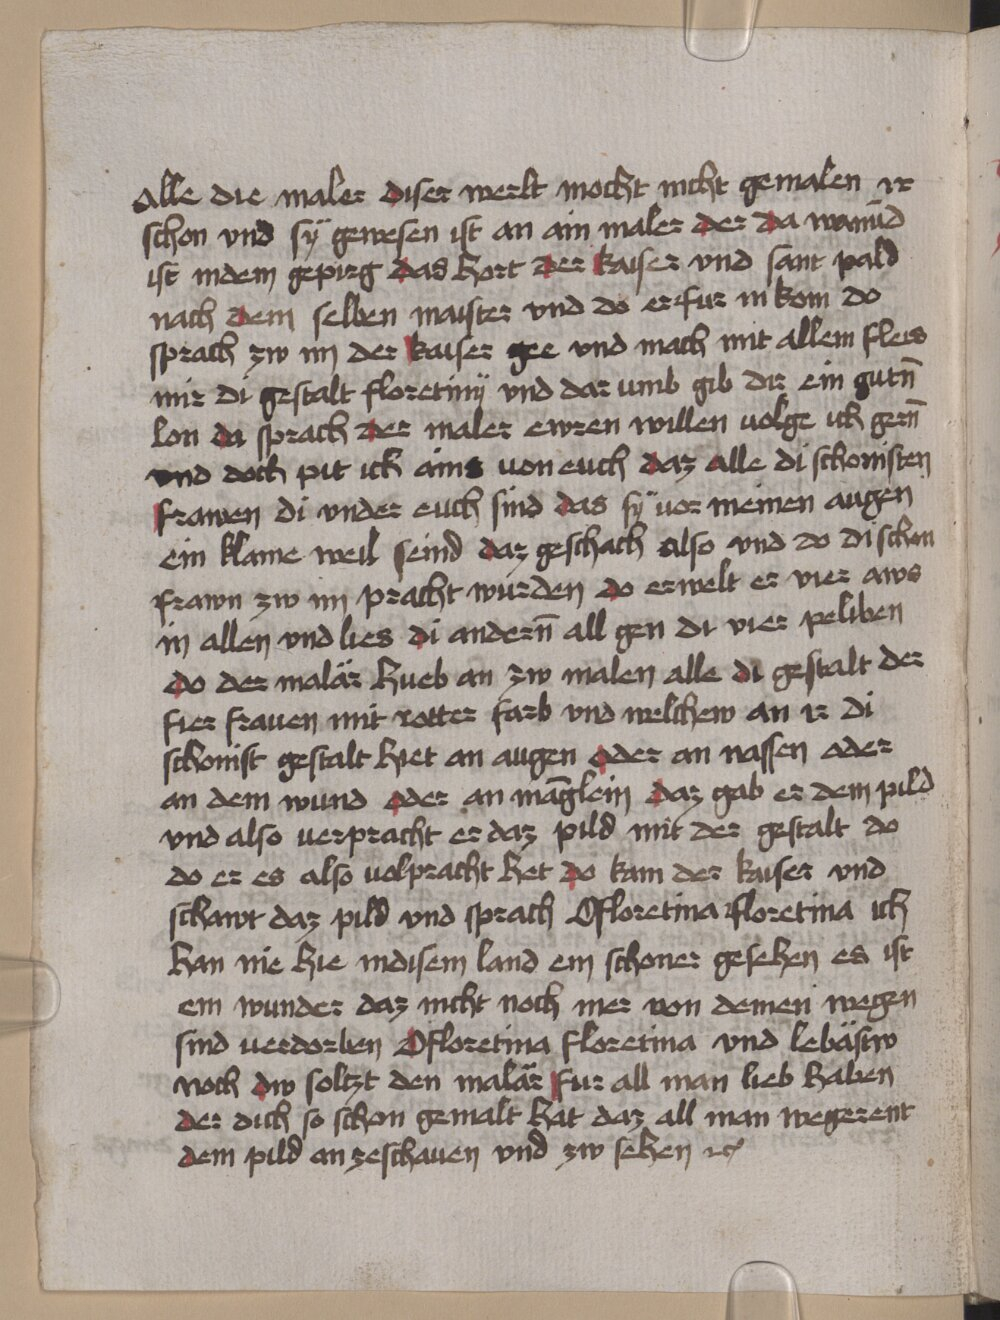 Alle die maler diser werlt mocht nicht gemalen ir
schon vnd sÿ gewesen ist an ain maler der da wanūd
ist indem gepirg das hort der kaiser vnd sant pald
nach dem selben maister vnd do erfur in kom do
sprach zw im der kaiser gee vnd mach mit allem fleis
mir di gestalt floretinÿ vnd dar umb gib dir ein gutn̄
lon da sprach der maler ewren willen volge ich gern̄
vnd doch pit ick ains von euch daz alle di schonisten
frawen di vnder euch sind das sÿ vor meinen augen
ein klaine weil seind daz geschach also vnd do di schon
frawn zw im pracht wurden do erwelt er vier aws
in allen vnd lies di andern̄ all gen di vier peliben
do der malär hueb an zw malen alle di gestalt der
fier frauen mit rotter farb vnd welchew an ir di
schonist gestalt hiet an augen oder an nassen oder
an dem wund oder an māglein daz gab er dem pild
vnd also verpracht er daz pild mit der gestalt do
do er es also volpracht het do kam der kaiser vnd
schawt daz pild vnd sprach O floretina floretina ich
han nie hie indisem land ein schoner gesehen es ist
ein wunder daz nicht noch mer von deinen wegen
sind verdorben O floretina floretina vnd lebästw
noch dw soltzt den malär fur all man lieb haben
der dich so schon gemalt hat daz all man wegerent
dem pild an zeschauen vnd zw sehen ꝛc